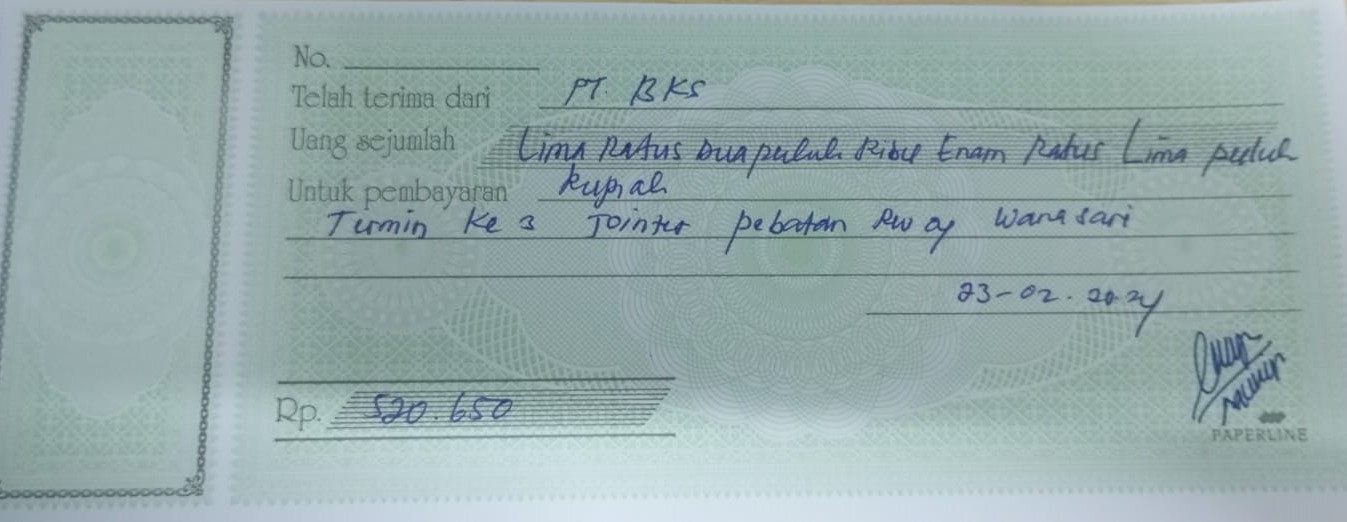 No.
Telah terima dari PT. BKS
Uang sejumlah Lima Ratus Dua puluh Ribu Enam Ratus Lima puluh
Untuk pembayaran Rupiah
Termin Ke 3 Jointer pebatan RW 09 Wanasari
23-02-2024
Rp. 520.650
PAPERLINE